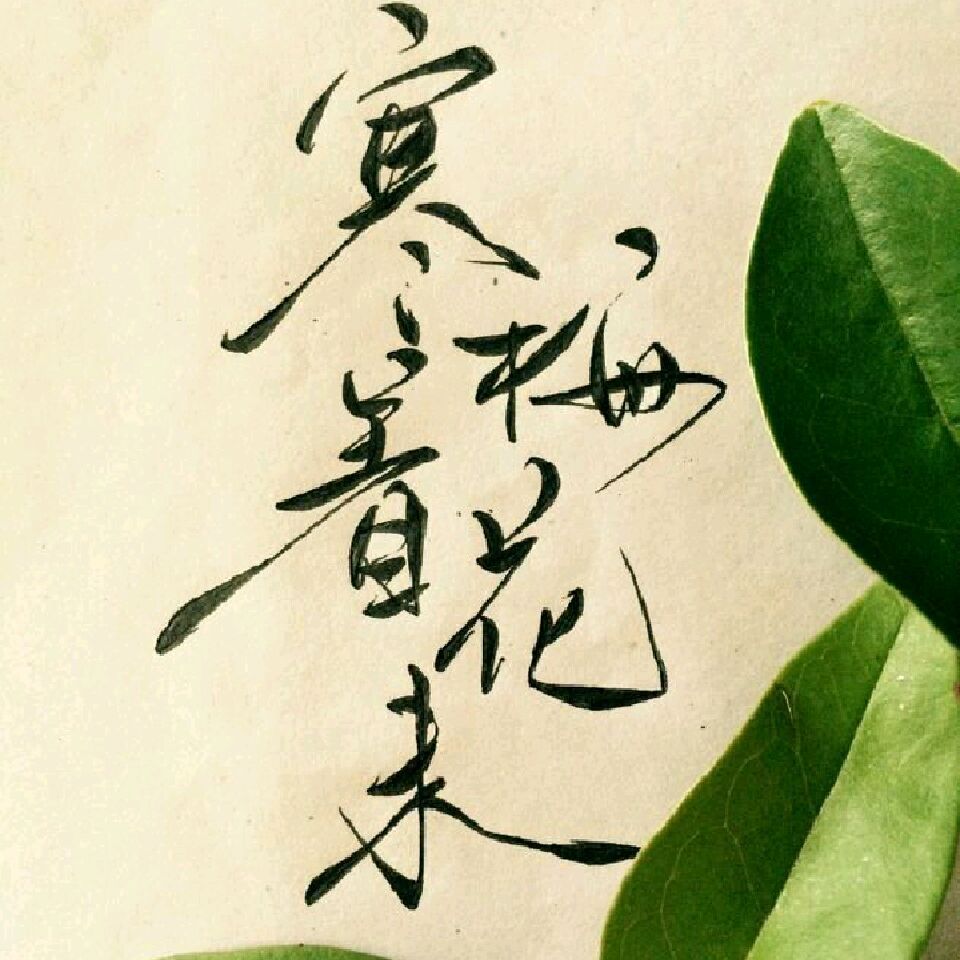 寒梅着花未